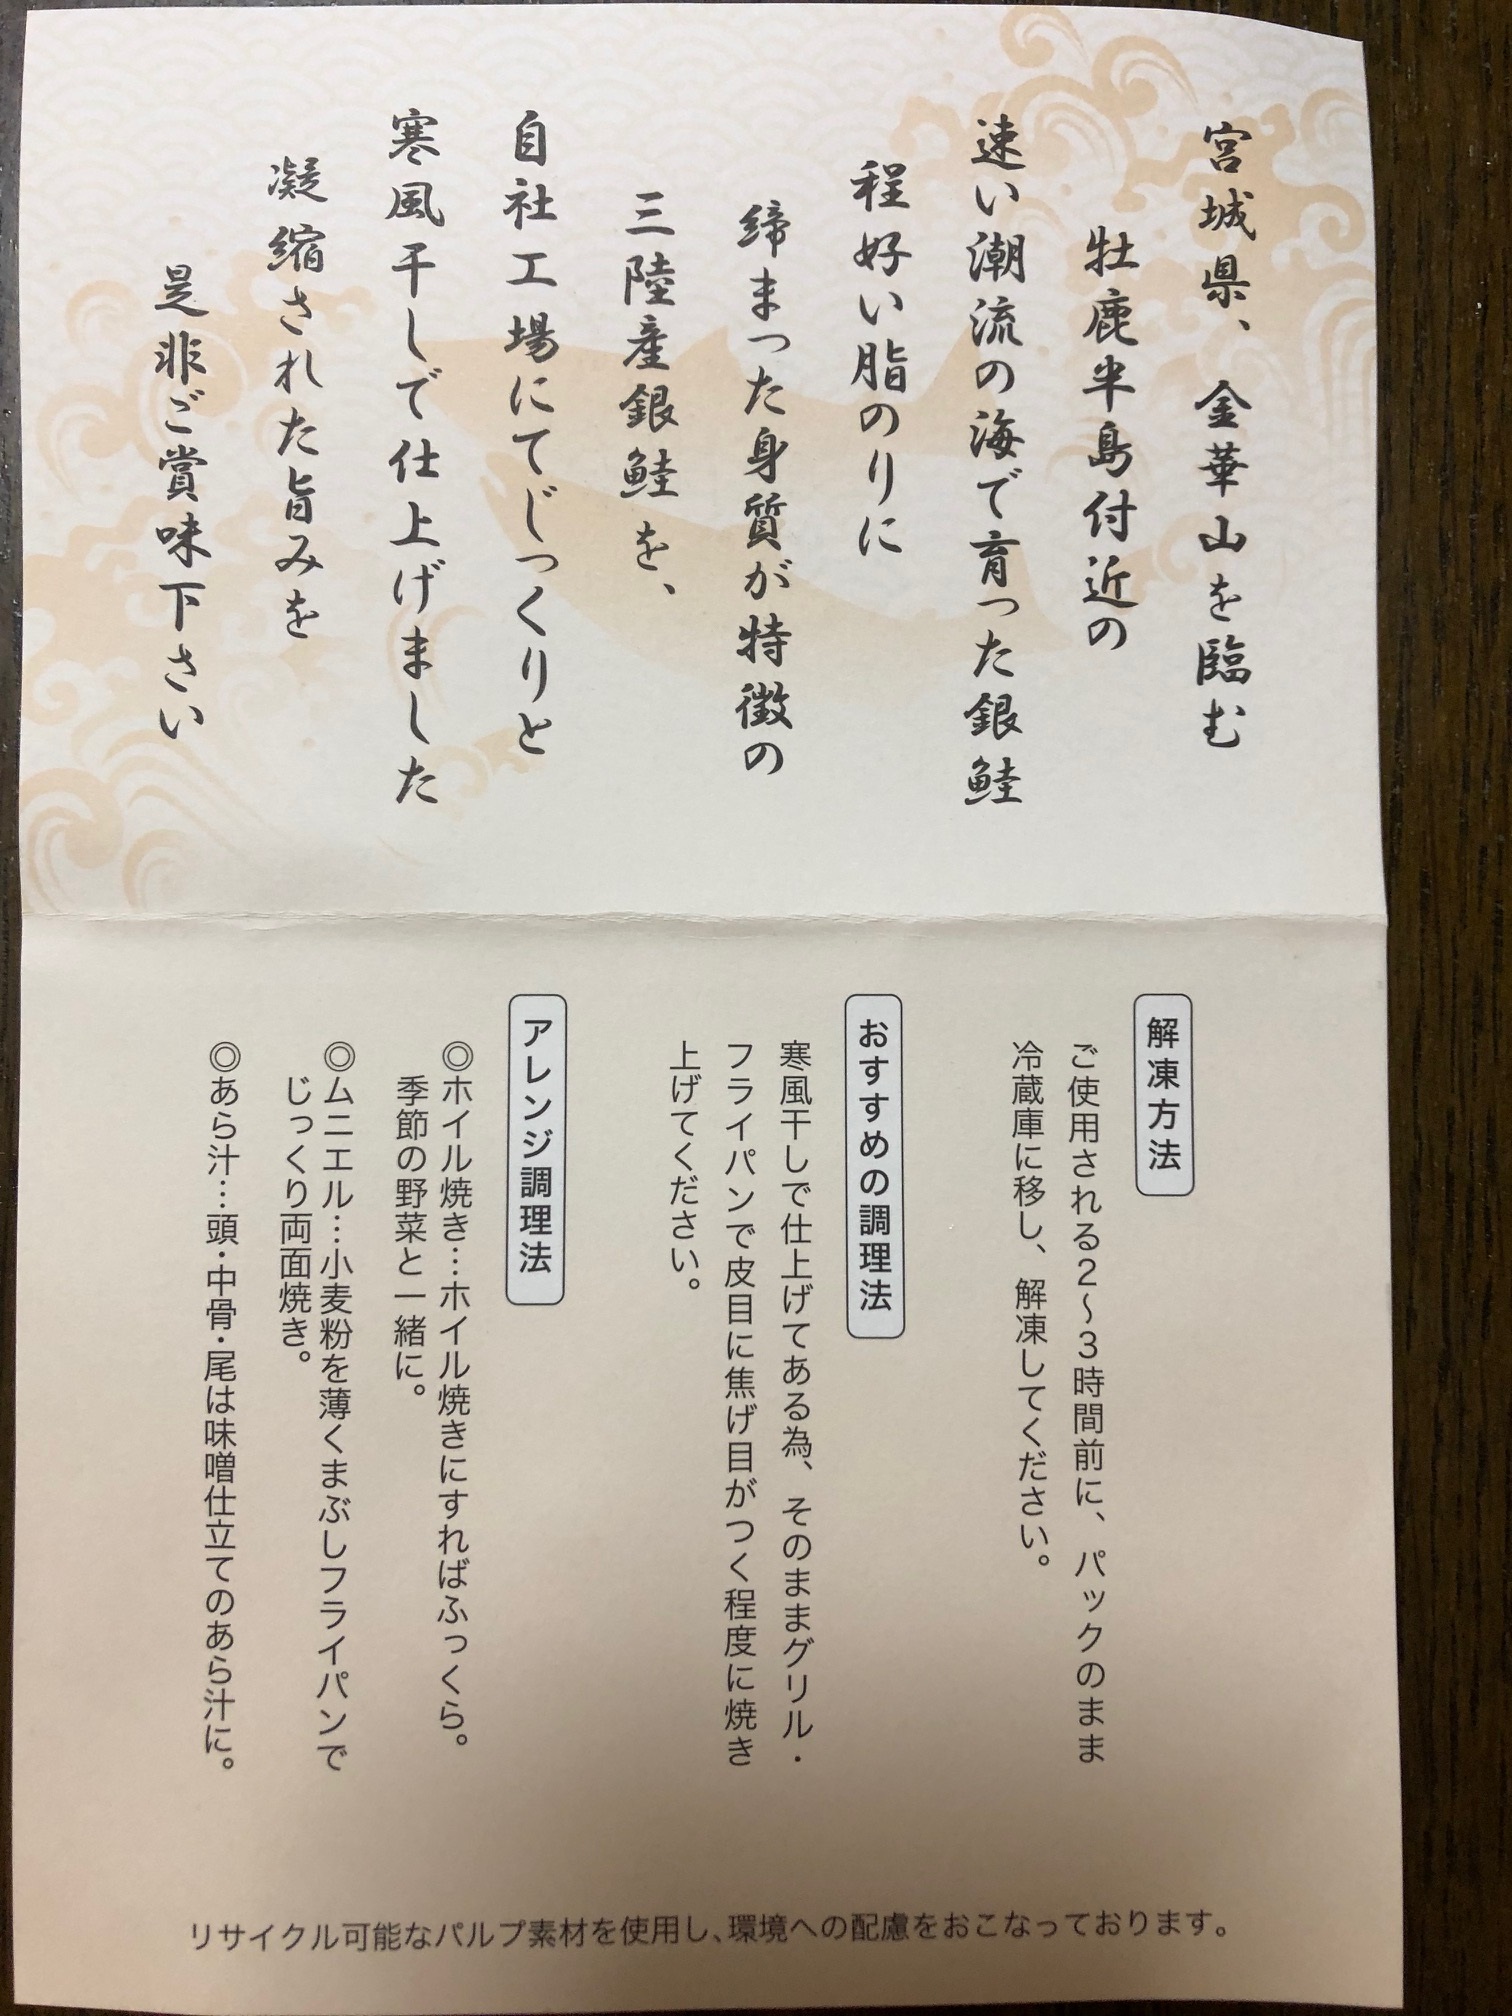 宮城県、金華山を臨む
牡鹿半島付近の
速い潮流の海で育った銀鮭
程好い脂のりに
締まった身質が特徴の
三陸産銀鮭を、
自社工場にてじっくりと
寒風干しで仕上げました
凝縮された旨みを
是非ご賞味下さい
解凍方法
ご使用される2〜3時間前に、パックのまま
冷蔵庫に移し、解凍してください。
おすすめの調理法
寒風干しで仕上げてある為、そのままグリル・
フライパンで皮目に焦げ目がつく程度に焼き
上げてください。
アレンジ調理法
◎ホイル焼き…ホイル焼きにすればふっくら。
季節の野菜と一緒に。
◎ムニエル…小麦粉を薄くまぶしフライパンで
じっくり両面焼き。
◎あら汁…頭・中骨・尾は味噌仕立てのあら汁に。
リサイクル可能なパルプ素材を使用し、環境への配慮をおこなっております。